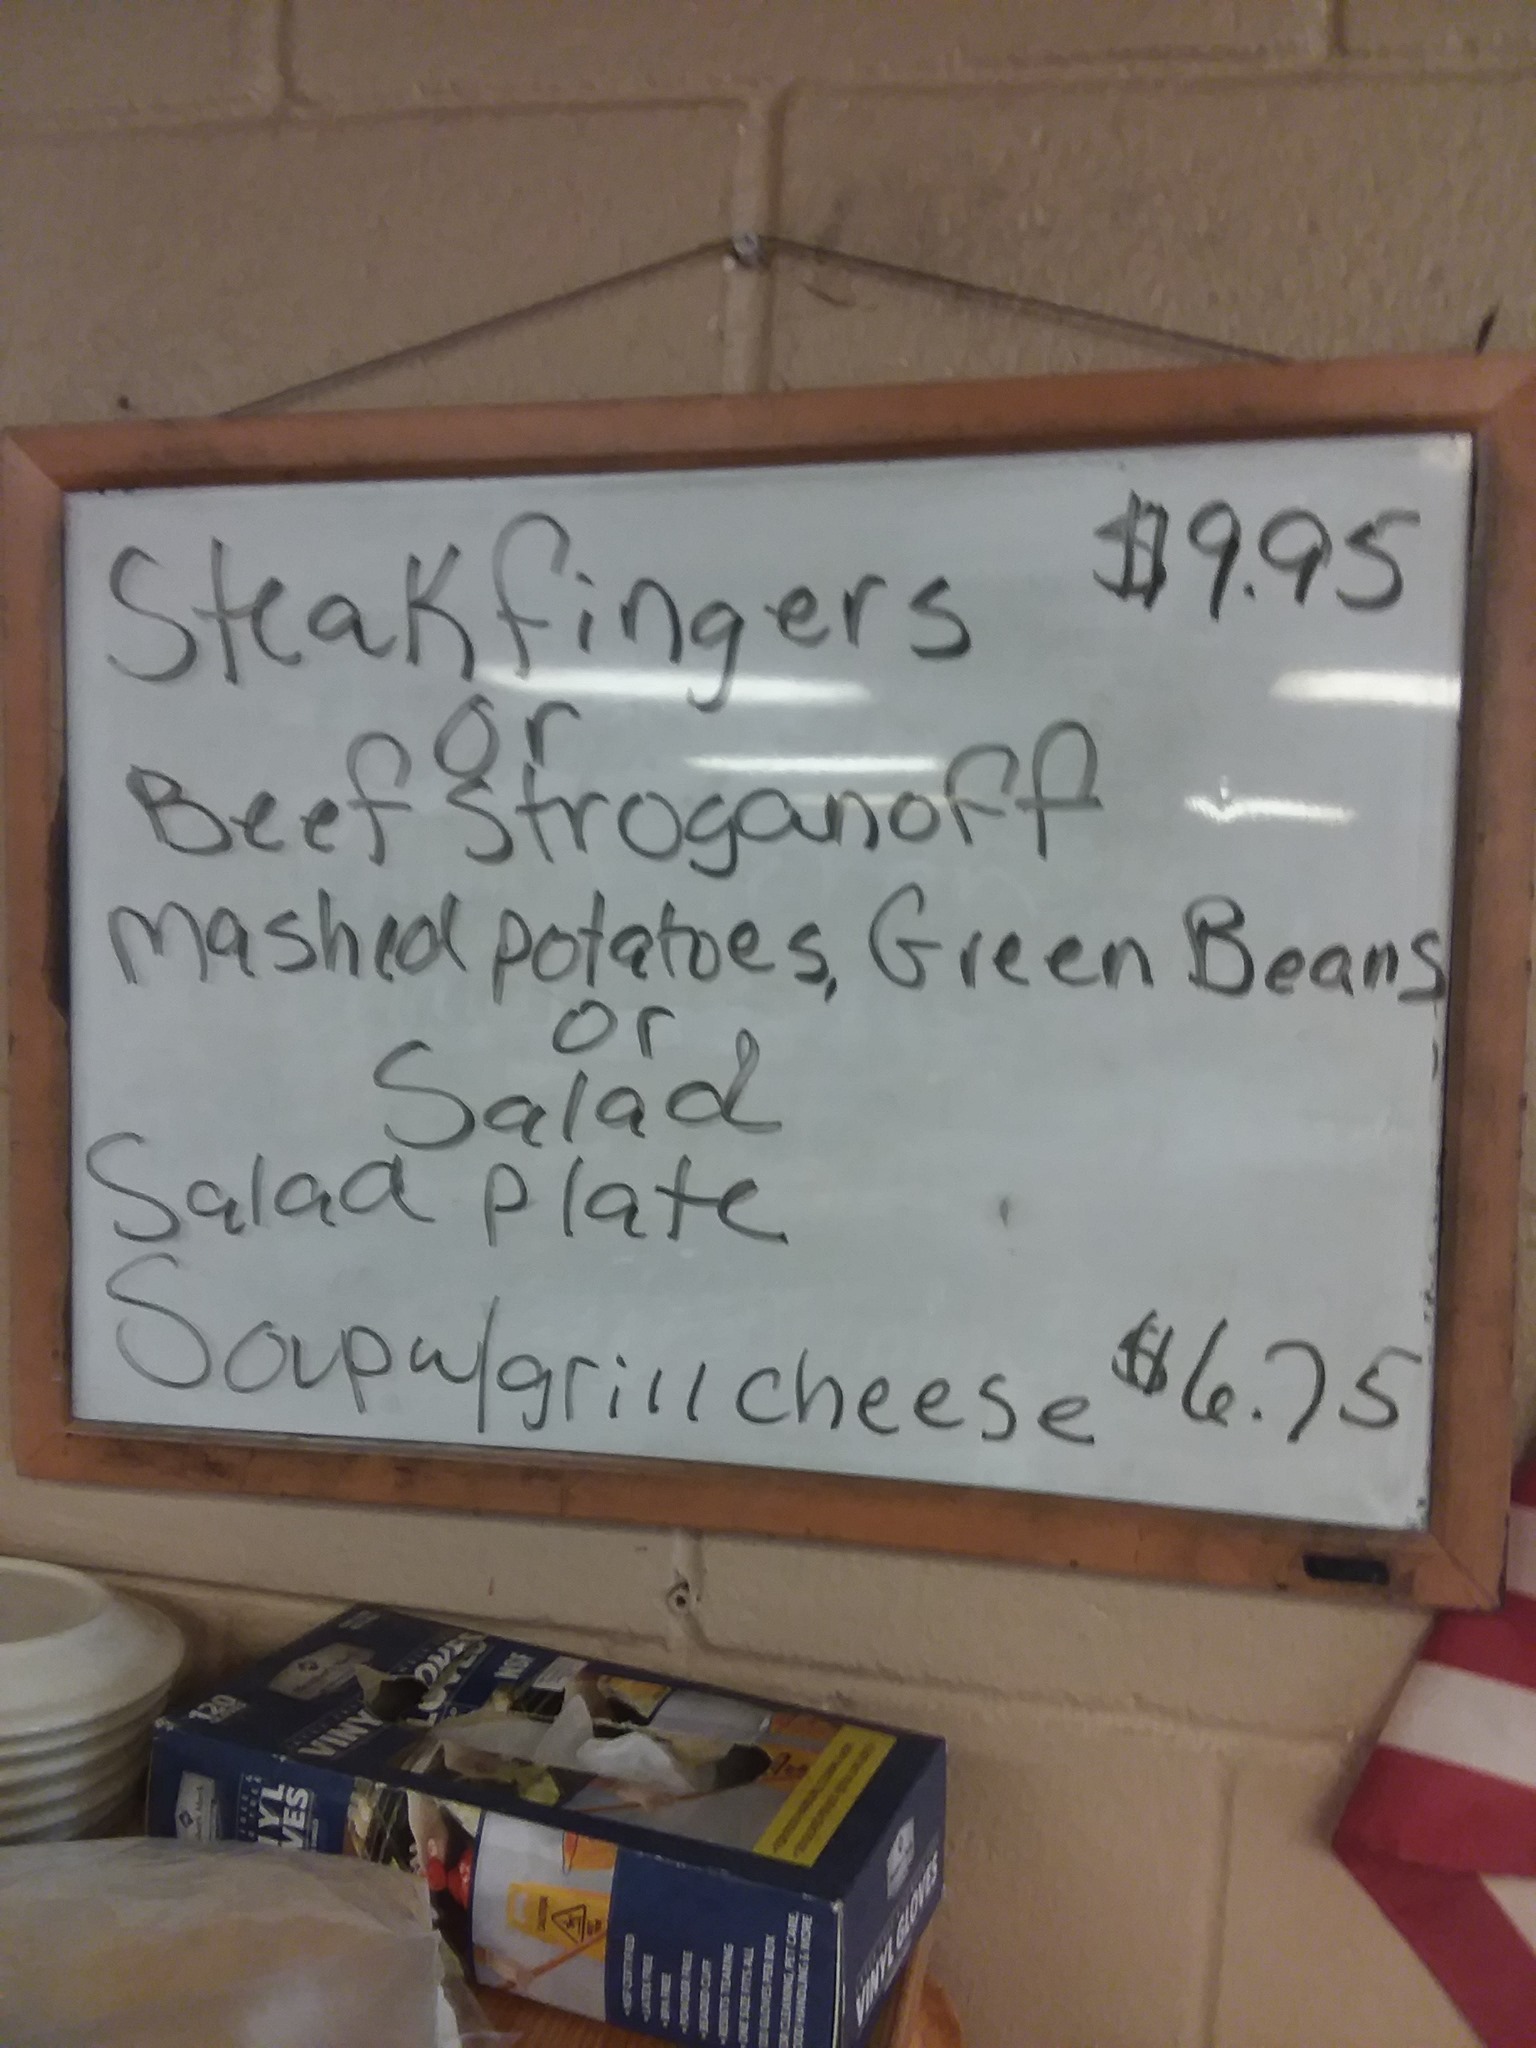 Steak fingers $9.95
or
Beef stroganoff
mashed potatoes, Green Beans
or
Salad
Salad plate
Soup w/grill cheese $6.75
120
VINYL GLOVES NSF
VINYL GLOVES